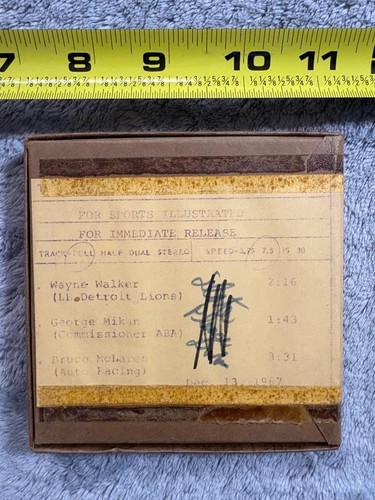 7 8 9 10 11
FOR SPORTS ILLUSTRATED
FOR IMMEDIATE RELEASE
TRACK-FULL HALF DUAL STEREO SPEED-3.75 7.5 15 30
Wayne Walker 2:16
(LB Detroit Lions)
George Mikan 1:43
(Commissioner ABA)
Bruce McLaren 3:31
(Auto Racing)
Dec. 13, 1967